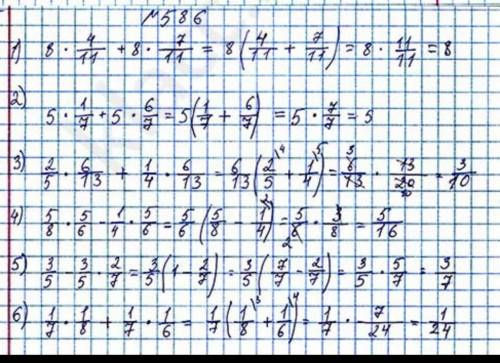 №586
1) 8 · 4/11 + 8 · 7/11 = 8(4/11 + 7/11) = 8 · 11/11 = 8
2) 5 · 1/7 + 5 · 6/7 = 5(1/7 + 6/7) = 5 · 7/7 = 5
3) 2/5 · 6/13 + 1/4 · 6/13 = 6/13(2/5\4 + 1/4\5) = 6/13 · 13/20 = 3/10
4) 5/8 · 5/6 - 1/4 · 5/6 = 5/6(5/8 - 1/4\2) = 5/6 · 3/8 = 5/16
5) 3/5 - 3/5 · 2/7 = 3/5(1 - 2/7) = 3/5(7/7 - 2/7) = 3/5 · 5/7 = 3/7
6) 1/7 · 1/8 + 1/7 · 1/6 = 1/7(1/8\3 + 1/6\4) = 1/7 · 7/24 = 1/24